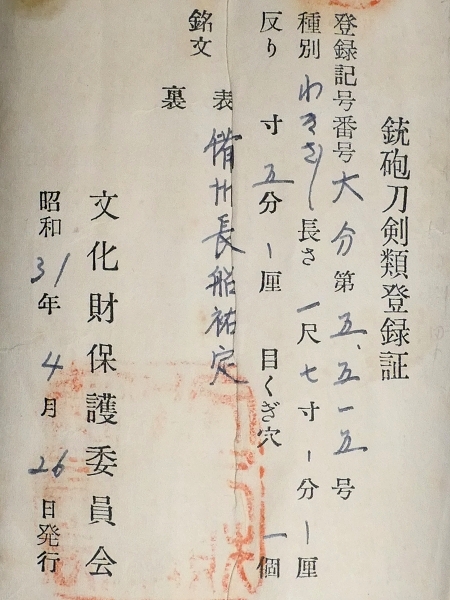 銃砲刀剣類登録証
登録記号番号 大分 第 五、五一五 号
種別 わきざし 長さ 一尺 七寸 ー分 ー厘
反り 寸 五分 ー厘 目くぎ穴 一個
銘文 表 備州長船祐定
裏
文化財保護委員会
昭和 31年 4月 26日発行